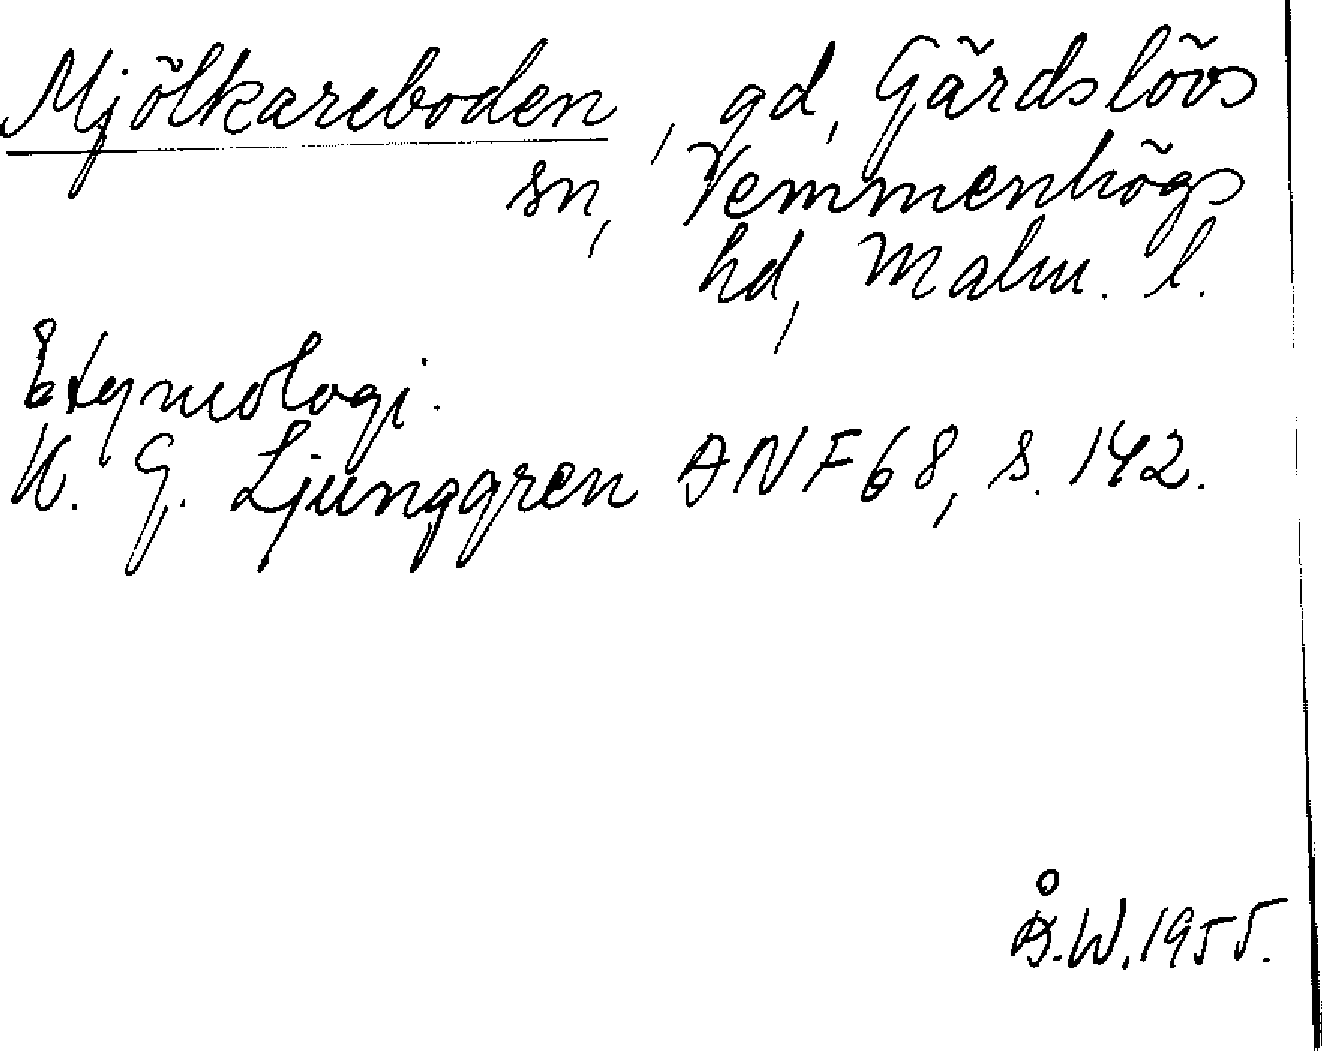 Mjölkareboden, gd, Gärdslövs
sn, Vemmenhögs
hd, Malm. l.
Etymologi.
K. G. Ljunggren ANF 68, s. 142.
Å.W. 1955.